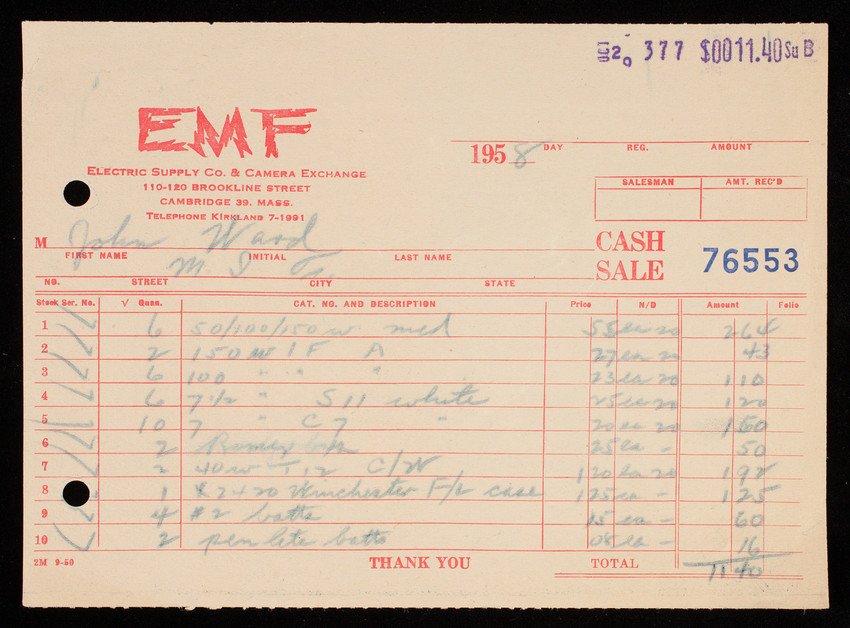 OCT 20 377 $0011.40 Su B
EMF
ELECTRIC SUPPLY CO. & CAMERA EXCHANGE
110-120 BROOKLINE STREET
CAMBRIDGE 39, MASS.
TELEPHONE KIRKLAND 7-1991
1958 DAY REG. AMOUNT
SALESMAN AMT. REC'D
M John Ward
FIRST NAME INITIAL LAST NAME
CASH SALE 76553
M. I T.
NO. STREET CITY STATE
Stock Ser. No. √ Quan. CAT. NO. AND DESCRIPTION Price N/D Amount Folio
1 6 50/100/150 w med 55 ea 20 264
2 2 150 w I F A 27 ea 20 43
3 6 100 " " " 23 ea 20 110
4 6 7 1/2 " S 11 white 25 ea 20 120
5 10 7 " C 7 " 20 ea 20 160
6 2 Romex 25 ea - 50
7 2 40 w T 12 C/W 120 ea 20 192
8 1 #2420 Winchester F/L case 125 ea - 125
9 4 #2 batts 15 ea - 60
10 2 pen lete batts 08 ea - 16
2M 9-50 THANK YOU TOTAL 1140